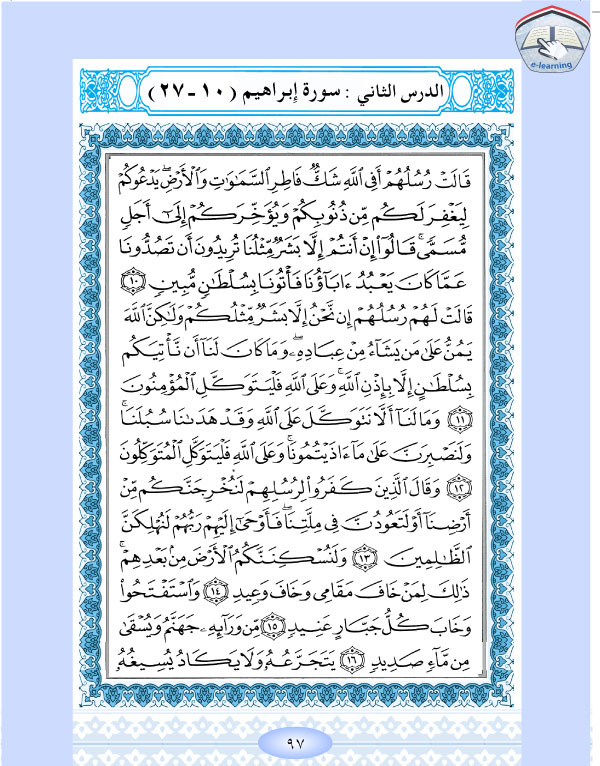 e-learning
الدرس الثاني : سورة إبراهيم ( ١٠ - ٢٧ )
قَالَتْ رُسُلُهُمْ أَفِي اللَّهِ شَكٌّ فَاطِرِ السَّمَٰوَٰتِ وَالْأَرْضِ ۖ يَدْعُوكُمْ
لِيَغْفِرَ لَكُم مِّن ذُنُوبِكُمْ وَيُؤَخِّرَكُمْ إِلَىٰٓ أَجَلٍ
مُّسَمًّى ۚ قَالُوٓا۟ إِنْ أَنتُمْ إِلَّا بَشَرٌ مِّثْلُنَا تُرِيدُونَ أَن تَصُدُّونَا
عَمَّا كَانَ يَعْبُدُ ءَابَآؤُنَا فَأْتُونَا بِسُلْطَٰنٍ مُّبِينٍ ١٠
قَالَتْ لَهُمْ رُسُلُهُمْ إِن نَّحْنُ إِلَّا بَشَرٌ مِّثْلُكُمْ وَلَٰكِنَّ اللَّهَ
يَمُنُّ عَلَىٰ مَن يَشَآءُ مِنْ عِبَادِهِۦ ۖ وَمَا كَانَ لَنَآ أَن نَّأْتِيَكُم
بِسُلْطَٰنٍ إِلَّا بِإِذْنِ اللَّهِ ۚ وَعَلَى اللَّهِ فَلْيَتَوَكَّلِ الْمُؤْمِنُونَ
١١ وَمَا لَنَآ أَلَّا نَتَوَكَّلَ عَلَى اللَّهِ وَقَدْ هَدَىٰنَا سُبُلَنَا ۚ
وَلَنَصْبِرَنَّ عَلَىٰ مَآ ءَاذَيْتُمُونَا ۚ وَعَلَى اللَّهِ فَلْيَتَوَكَّلِ الْمُتَوَكِّلُونَ
١٢ وَقَالَ الَّذِينَ كَفَرُوا۟ لِرُسُلِهِمْ لَنُخْرِجَنَّكُم مِّنْ
أَرْضِنَآ أَوْ لَتَعُودُنَّ فِي مِلَّتِنَا ۖ فَأَوْحَىٰٓ إِلَيْهِمْ رَبُّهُمْ لَنُهْلِكَنَّ
الظَّٰلِمِينَ ١٣ وَلَنُسْكِنَنَّكُمُ الْأَرْضَ مِنۢ بَعْدِهِمْ ۚ
ذَٰلِكَ لِمَنْ خَافَ مَقَامِي وَخَافَ وَعِيدِ ١٤ وَاسْتَفْتَحُوا۟
وَخَابَ كُلُّ جَبَّارٍ عَنِيدٍ ١٥ مِّن وَرَآئِهِۦ جَهَنَّمُ وَيُسْقَىٰ
مِن مَّآءٍ صَدِيدٍ ١٦ يَتَجَرَّعُهُۥ وَلَا يَكَادُ يُسِيغُهُۥ
٩٧